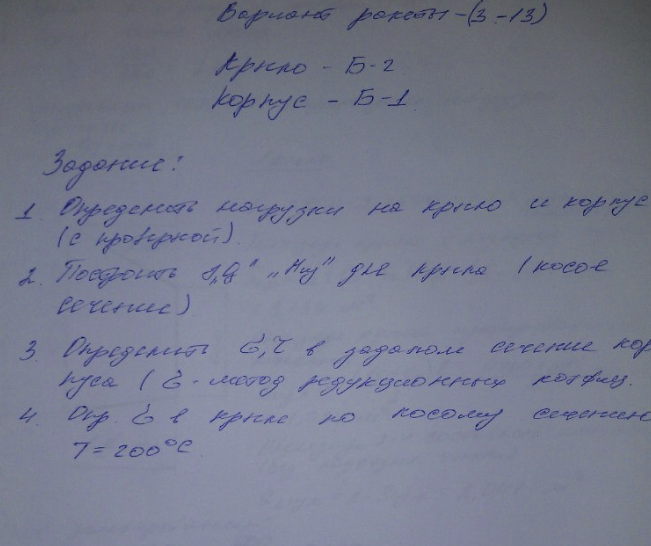 Вариант ракеты - (3-13)
Крыло - Б-2
Корпус - Б-1
Задание:
1 Определить нагрузки на крыло и корпус
(с проверкой).
2. Построить „Q“ „Миз“ для крыла (косое
сечение)
3. Определить σ, τ в заданом сечение кор
пуса (σ - метод редукционных коэфиц.
4. Опр. σ в крыле по косому сечению
T = 200°C